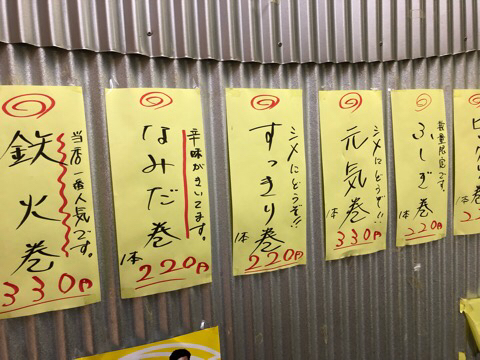 当店一番人気です。
鉄火巻
330円
辛味がきいてます。
なみだ巻
1本
220円
シメにどうぞ!!
すっきり巻
1本
220円
シメにどうぞ!!
元気巻
1本
330円
数量限定です。
ふしぎ巻
1本
220円